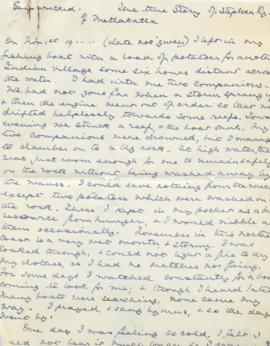 Shipwrecked. The true Story of Stephen Ry
of Metlakatla
On Nov. 1st 19.... (date not given) I left in my
fishing boat with a load of potatoes for another
Indian Village some six hours distant across
the water. I had with me two companions.
We had not gone far when a storm sprung up
& then the engine went out of order so that we
drifted helplessly towards some reefs. Soon
we struck a reef, the boat sunk, my
two companions were drowned, but I managed
to clamber on to a big rock. At high water there
was just room enough for me to remain safely
on the rock without being washed away by
the waves. I could save nothing from the wreck
except two potatoes which were washed on
the rock. These I kept in my pocket as a last
resource from hunger, & I would nibble a
them occasionally. November in this northern
coast is a very wet month & stormy. I was
soaked through, & could not light a fire to dry
my clothes, as I had no matches nor firing.
For some days I watched constantly for
coming to look for me; & though I heard later
many boats were searching, none came my
way. I prayed & sang hymns, & so the days
went by.
One day I was feeling so cold, I felt I
could not bear it much longer so I